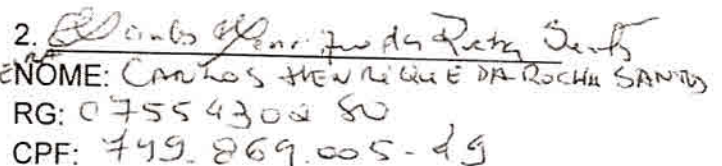 2. Carlos Henrique da Rocha Santos
NOME: CARLOS HENRIQUE DA ROCHA SANTOS
RG: 07554302 80
CPF: 749.869.005-49